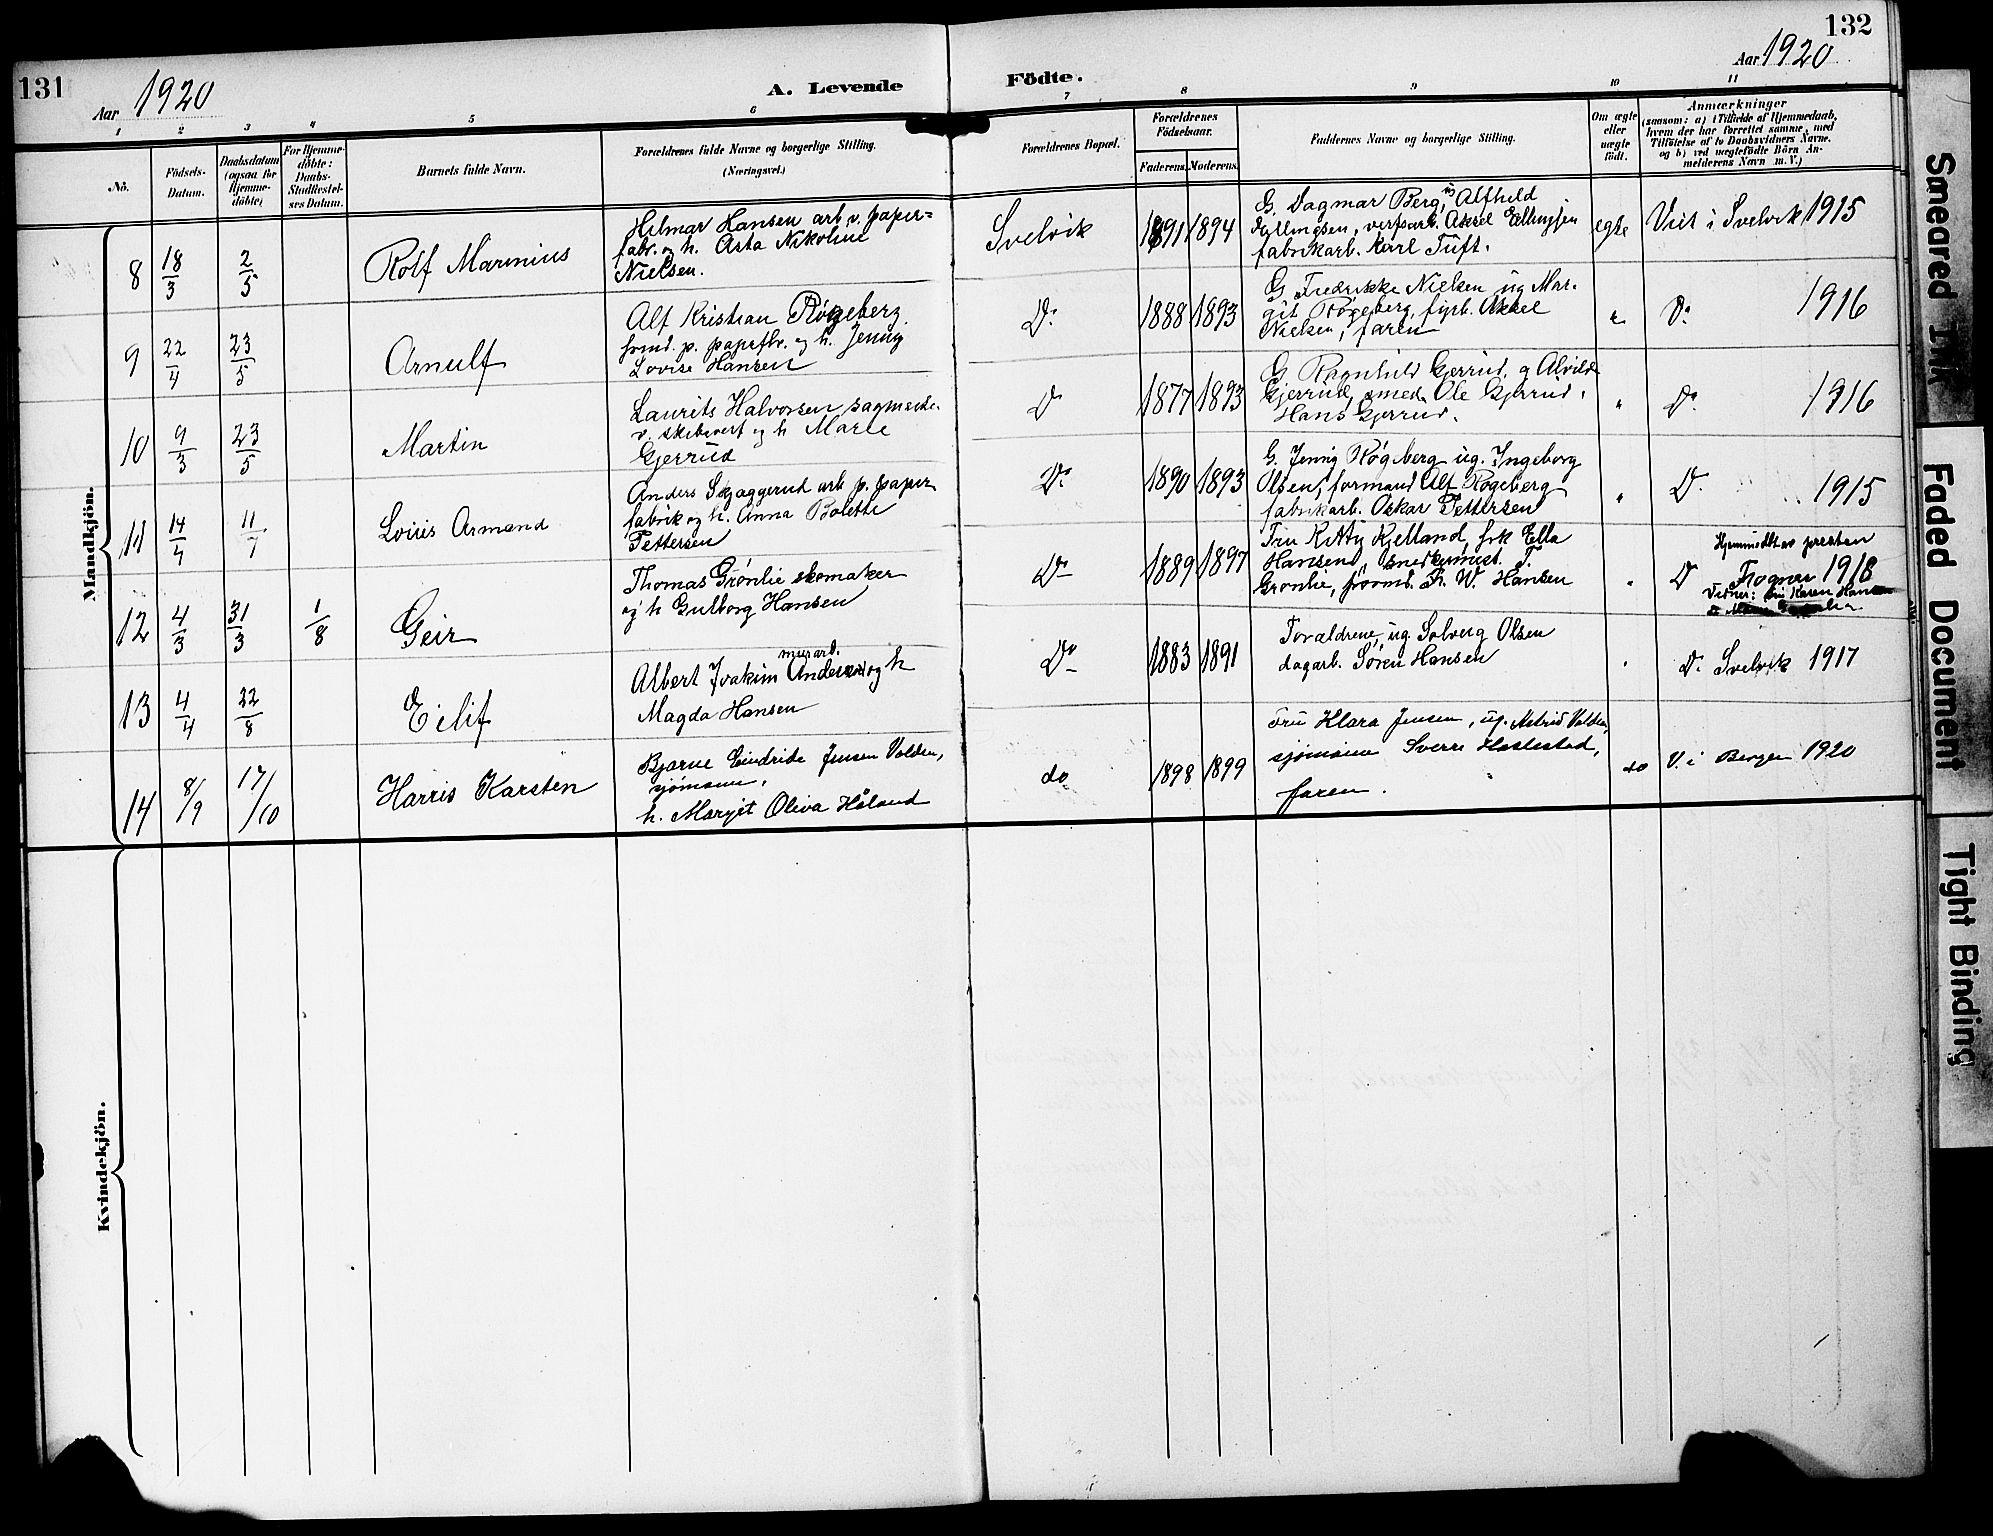 131
132
Aar 1920
A. Levende
Födte.
Aar 1920
1 2 3 4 5 6 7 8 9 10 11
No.
Födsels-
Datum.
Daabsdatum
(ogsaa for
Hjemme-
döbte)
For Hjemme-
döbte:
Daabs-
Stadfæstel-
ses Datum.
Barnets fulde Navn.
Forældrenes fulde Navne og borgerlige Stilling.
(Næringsvei.)
Forældrenes Bopæl.
Forældrenes
Födselsaar.
Faderens. Moderens.
Faddernes Navne og borgerlige Stilling.
Om ægte
eller
uægte
födt.
Anmærkninger
(saasom: a) i Tilfælde af Hjemmedaab,
hvem der har forrettet samme, med
Tilföielse af to Daabsvidners Navne,
og b) ved uægtefödte Börn An-
melderens Navn m. V.)
Mandkjön.
8 18/3 2/5 Rolf Marinius
Hilmar Hansen arb. v. papir=
fabr. og h. Asta Nikoline
Nielsen.
Svelvik 1891 1894
G. Dagmar Berg, ug Alfhild
Gyllmosen, verfsarb. Aksel Ellingsen
fabrikarb. Karl Tuft.
egte Viet i Svelvik 1915
9 22/4 23/5 Arnulf
Alf Kristian Røgeberg
formd. p. papirfbr. og h. Jenny
Lovise Hansen
Do 1888 1893
G. Fredrikke Nielsen ug Mar-
git Røgeberg, fyrb. Aksel
Nielsen, faren
" Do 1916
10 9/3 23/5 Martin
Laurits Halvorsen sagmeste.
v. skibsverf og h Marie
Gjerrud
Do 1877 1893
G Ragnhild Gjerrud. g Alvilde
Gjerrud, smed. Ole Gjerrud,
Hans Gjerrud.
" Do 1916
11 14/4 11/7 Louis Armand
Anders Skjaggerud arb p. papir
fabrik og h. Anna Bolette
Pettersen
Do 1890 1893
G. Jenny Røgeberg ug. Ingeborg
Olsen, formand Alf Røgeberg
fabrikarb. Oskar Pettersen
" Do 1915
12 4/3 31/3 1/8 Geir
Thomas Grønlie skomaker
og h Gulborg Hansen
Do 1889 1897
Fru Kitty Kjelland, frk Ella
Hansen, snedkermest. T.
Grønlie, formd. Fr. W. Hansen
" Do Hjemmedbt av presten
Fogner 1918
Vidner: fru Karen Hansen
13 4/4 22/8 Eilif
Albert Joakim Andersen og h
murarb.
Magda Hansen
Do 1883 1891
Forældrene, ug. Solveig Olsen
dagarb. Søren Hansen
" Do Svelvik 1917
14 8/9 17/10 Harris Karsten
Bjarne Eindride Jensen Volden,
sjømann,
h. Margit Oliva Håland
do 1898 1899
Fru Klara Jensen, ug. Astrid Volden,
sjømann Sverre Hastestad,
faren.
do V. i Bergen 1920
Kvindekjön.
Smeared Ink
Faded Document
Tight Binding